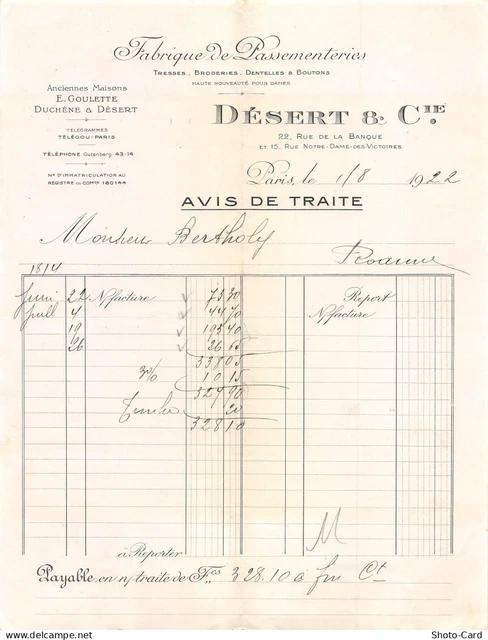 Fabrique de Passementeries
Tresses, Broderies, Dentelles & Boutons
Haute Nouveauté pour Dames
Anciennes Maisons
E. Goulette
Duchêne & Désert
Télégrammes
Télégou-Paris
Téléphone Gutenberg 43-14
N° d'Immatriculation au
Registre du Comce 180144
Désert & Cie
22, Rue de la Banque
et 15, Rue Notre-Dame-des-Victoires
Paris, le 1/8 1922
AVIS DE TRAITE
Monsieur Bertholy
Roanne
1814
Juin 22 N/facture 73 30 Report
Juill 4 44 70 N/facture
19 193 40
26 26 65
338 05
3% 10 15
327 90
Timbre 20
328 10
à Reporter
Payable en n/ traite de Fcs 328.10 à fin Ct
Ankauf-Sammlungen.com
Shoto-Card